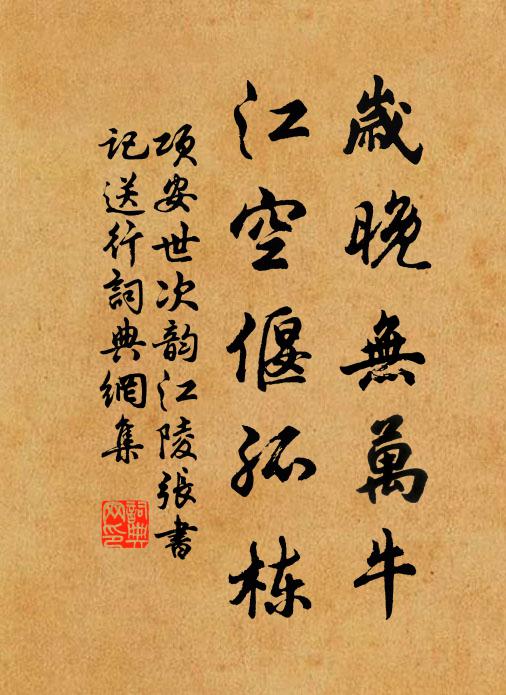 歲晚無萬牛
江空偃孤棟
項安世次韵江陵張書
記送行詞典網集
詞典
网印